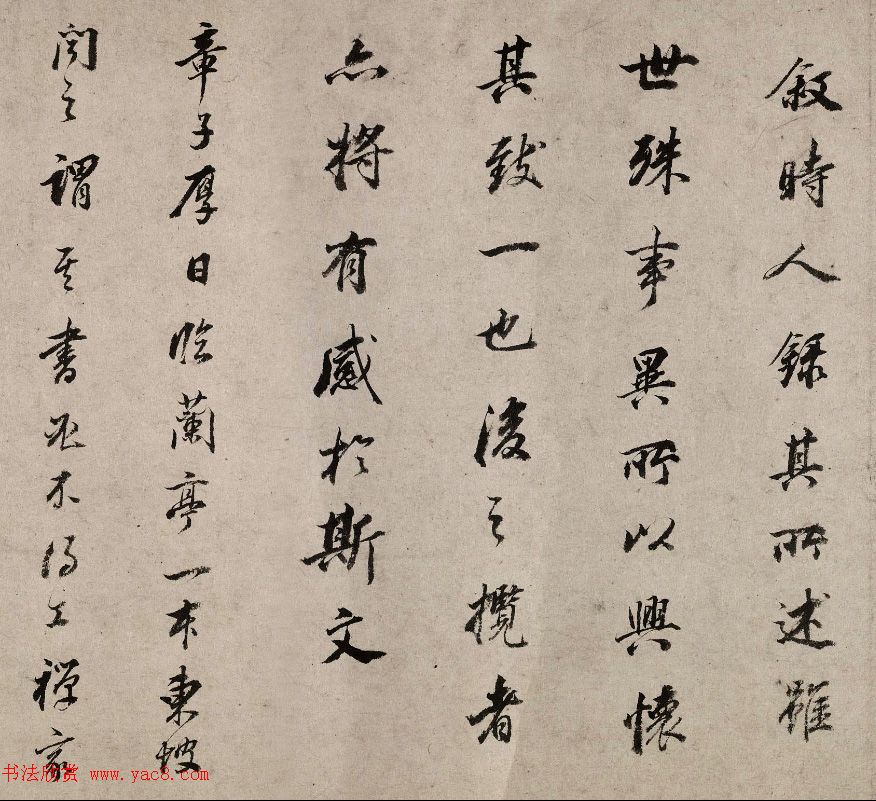 敘時人錄其所述雖
世殊事異所以興懷
其致一也後之攬者
亦將有感於斯文
章子厚日臨蘭亭一本東坡
聞之謂其書必不得工禪家
书法欣赏 www.yac8.com